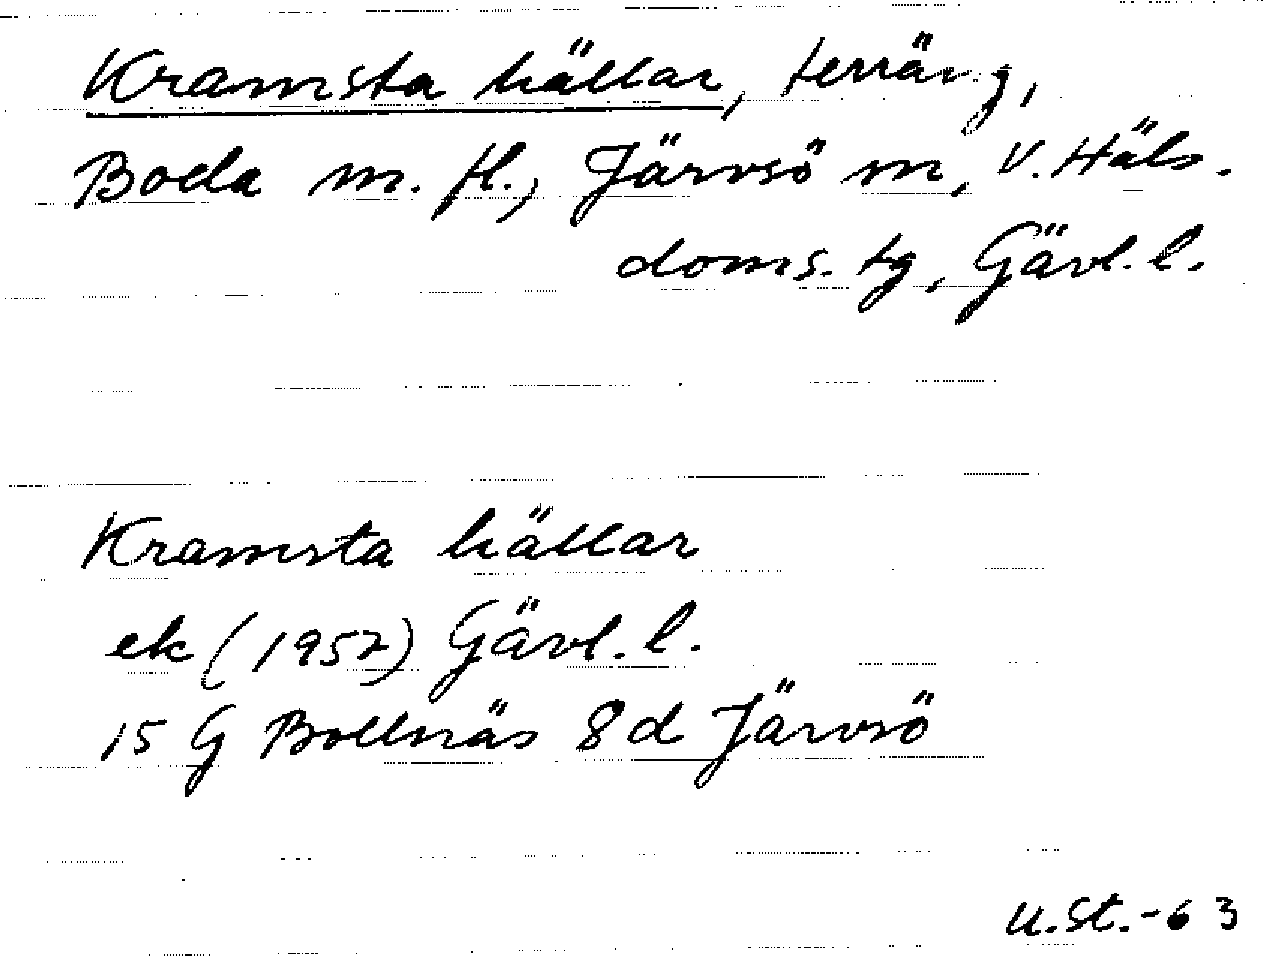 Kramsta hällar, terräng,
Boda m. fl., Järvsö m, V. Häls.
doms. tg, Gävl. l.
Kramsta hällar
ek (1957) Gävl. l.
15 G Bollnäs 8d Järvsö
U.St.-63